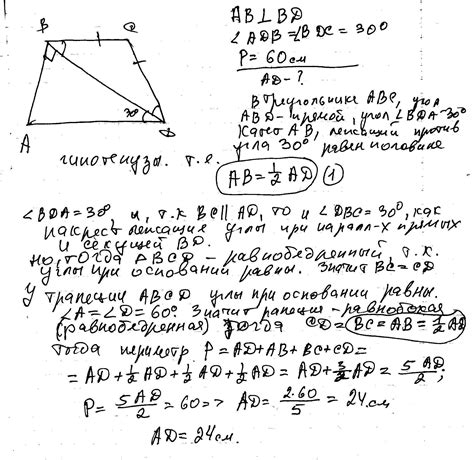 B C
A D
30°
AB⊥BD
∠ADB=∠BDC=30°
P=60см
AD-?
В треугольнике ABC, угол
ABD- прямой, угол ∠BDA=30°
Катет AB, лежащий против
угла 30° равен половине
гипотенузы. т.е. AB=½AD (1)
∠BDA=30°, и, т.к BC∥AD, то и ∠DBC=30°, как
накрест лежащие углы при паралл-х прямых
и секущей BD.
Но, тогда ΔBCD - равнобедренный, т.к.
углы при основании равны. Значит BC=CD
У трапеции ABCD углы при основании равны.
∠A=∠D=60°. Значит трапеция - равнобокая
(равнобедренная) Тогда CD=BC=AB=½AD
Тогда периметр P=AD+AB+BC+CD=
=AD+½AD+½AD+½AD=AD+3/2AD=5AD/2;
P=5AD/2=60=> AD=2·60/5=24см
AD=24см.